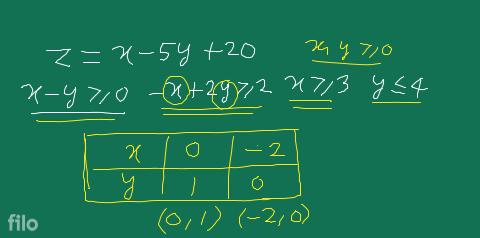 z = x - 5y + 20 x, y ≥ 0
x - y ≥ 0 -x + 2y ≥ 2 x ≥ 3 y ≤ 4
x 0 -2
y 1 0
(0, 1) (-2, 0)
filo